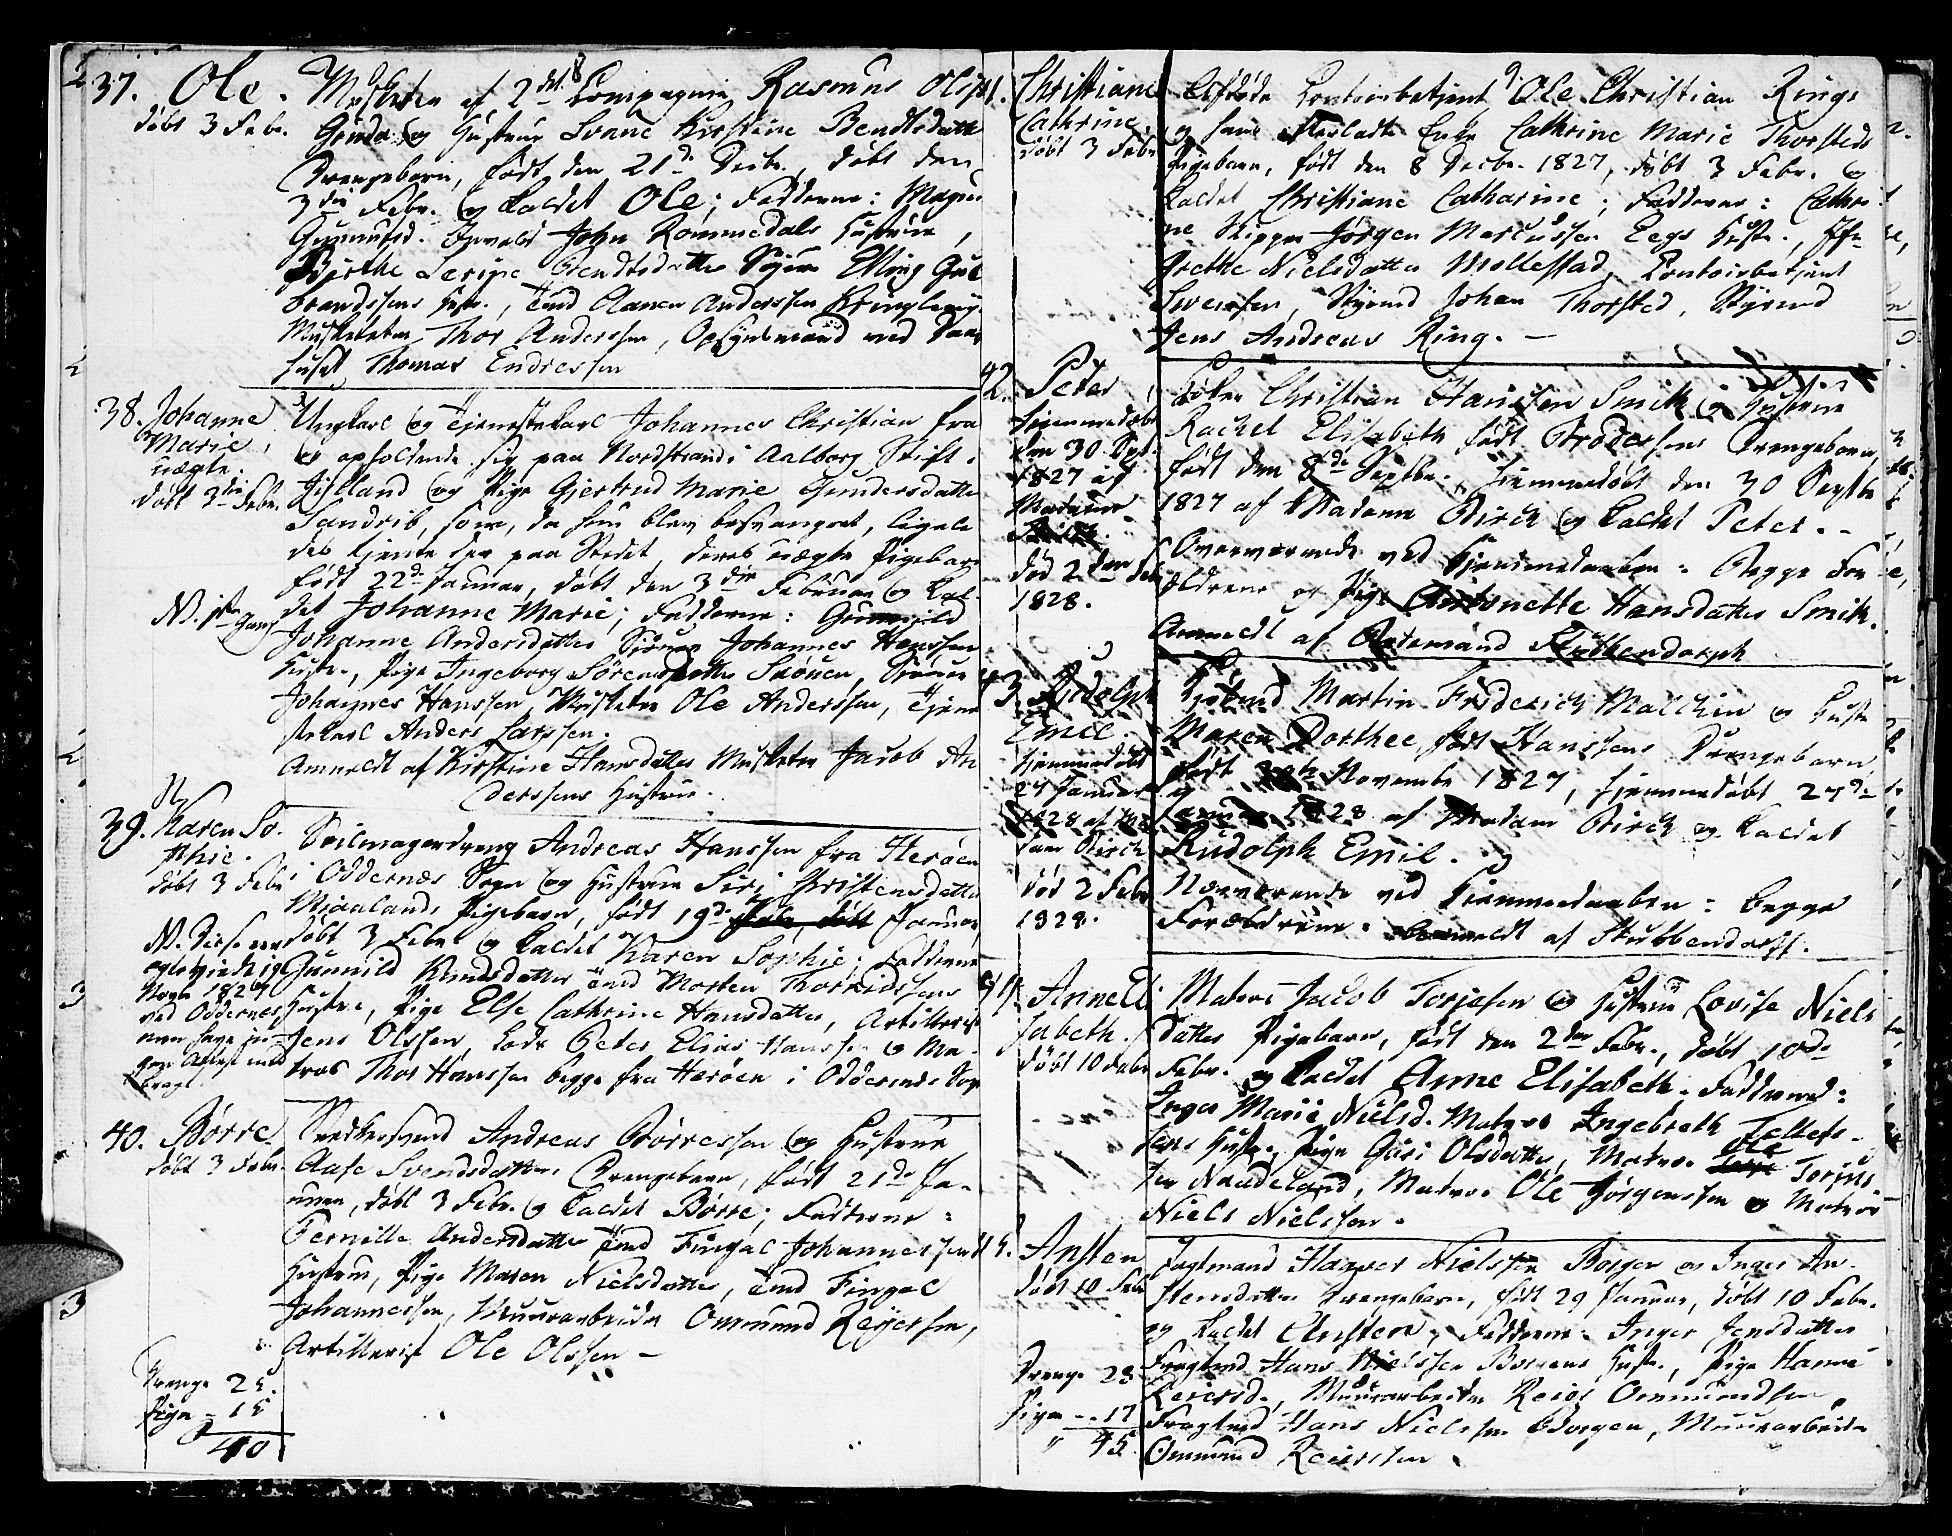 8
37. Ole.
døbt 3 Febr.
Musketer af 2det Compagnie Rasmus Olsen
og Hustrue Svane Kirstine Bendtsdatter
Drengebarn, født den 21de Decbr., døbt den
3die Febr. og kaldet Ole; Fadderne: Magn
John Rommedals Hustrue,
Birthe Bendtsdatter Elling Gul
brandssens Hust., Tmd Aanen Anderssen Kringle
Musketer Thor Anderssen, Opsynsmand ved
huset Thomas Endressen
38. Johanne
Marie,
uægte.
døbt 3die Febr.
Ungkarl og Tjenestekarl Johannes Christian fra
og opholdende sig paa Nordstrand i Aalborg Stift i
Jylland og Pige Gjertrud Marie Gundersdatter
Sandrib, som, da hun blev besvangret, ligele
des tjente der paa Stedet, deres uægte Pigebarn
født 22de Januar, døbt den 3die Februar og kal-
N. 1ste Gang
det Johanne Marie; Fadderne: Gunnild
Johanne Andersdatter Johannes Hanssen
Hustr., Pige Ingeborg Sørensdatter
Johannes Hanssen, Musketer Ole Anderssen, Tjene
stekarl Anders Larssen.
Anmeldt af Kirstine Hansdatter Musketer Jacob An
derssens Hustrue.
39. Karen So-
phie.
døbt 3 Febr
Seilmagerdreng Andreas Hanssen fra Herøen
i Oddernæs Sogn og Hustrue Siri Christensdatter
Pigebarn, født 19de Januar
døbt 3 Febr og kaldet Karen Sophie; Fadderne
N. Disse ere
1827
ved Oddernes
men have in-
gen Attest med
bragt
Gunnild Knudsdatter Tmd Morten Thorkildssens
Hustrue, Pige Else Cathrine Hansdatter, Artillerist
Jens Olssen, Lods Peter Elias Hanssen og Ma-
tros Thor Hanssen begge fra Herøen i Oddernæs Sogn
40. Børre
døbt 3 Febr.
Snedkersvend Andreas Børressen og Hustrue
Aase Svendsdatter Drengebarn, født 21de Ja-
nuar, døbt 3 Febr. og kaldet Børre; Fadderne:
Pernille Andersdatter Tmd Fingal Johannessens
Hustrue, Pige Maren Nielsdatter, Tmd Fingal
Johannessen, Muurarbeider Ommund Reyerssen,
Artillerist Ole Olssen
Drenge 25.
Piger - 15
40
9
41. Christiane
Cathrine
døbt 3 Febr
Afdøde Contoirbetjent Ole Christian Rings
og hans efterladte Enke Cathrine Marie Thorsteds
Pigebarn, født den 8 Decbr. 1827, døbt 3 Febr. og
kaldet Christiane Catharine; Fadderne: Cathri
ne Skipper Jørgen Marcussen Eegs Hustr.,
Grethe Nielsdatter Mollestad, Contoirbetjent
Sivertsen, Styrmd Johan Thorsted, Styrmd
Jens Andreas Ring.
42. Peter
hjemmedøbt
den 30 Spt.
1827 af
Madame
Birch.
død 2den Feb
1828.
Christian Hanssen Smith og Hustrue
Rachel Elisabeth født Brodersens Drengebarn
født den 8de Septbr. hjemmedøbt den 30 Septbr
1827 af Madame Birch og kaldet Peter.
Overværende ved Hjemmedaaben: Begge For
ældrene og Pige Antonette Hansdatter Smith.
Anmeldt af Stubbendorph
43. Rudolph
Emil.
hjemmedøbt
27 Januar
1828 af Ma
dam Birch
død 2 Febr
1828.
Martin Friderich Malchin og Hustr
Maren Dorthee født Hanssens Drengebarn
født November 1827, hjemmedøbt 27de
Januar 1828 af Madam Birch og kaldet
Rudolph Emil.
Nærværende ved Hjemmedaaben: begge
Forældrene. Anmeldt af Stubbendorff.
44. Anne Eli
sabeth.
døbt 10 Febr
Matros Jacob Torjesen og Hustrue Lovise Niels
datter Pigebarn, født den 2den Febr., døbt 10de
Febr. og kaldet Anne Elisabeth. Fadderne:
Inger Marie Nielsd. Matros Ingebreth Tellefs-
sens Hustr., Pige Guri Olsdatter, Matros Ole Torjus
sen Naudeland, Matros Ole Jørgenssen og Matros
Niels Nielssen.
45. Ansten
døbt 10 Febr
Hagver Nielssen Borgen og Inger An-
stensdatter Drengebarn, født 29 Januar, døbt 10 Febr.
og kaldet Ansten; Fadderne: Inger Jensdatter
Fragtmd Hans Nielssen Borgens Hustr., Pige Hanne
Reiersd., Muurarbeider Reier Ommundsen
Fragtmd Hans Nielssen Borgen, Muurarbeider
Ommund Reierssen.
Drenge 28
Piger - 17
45